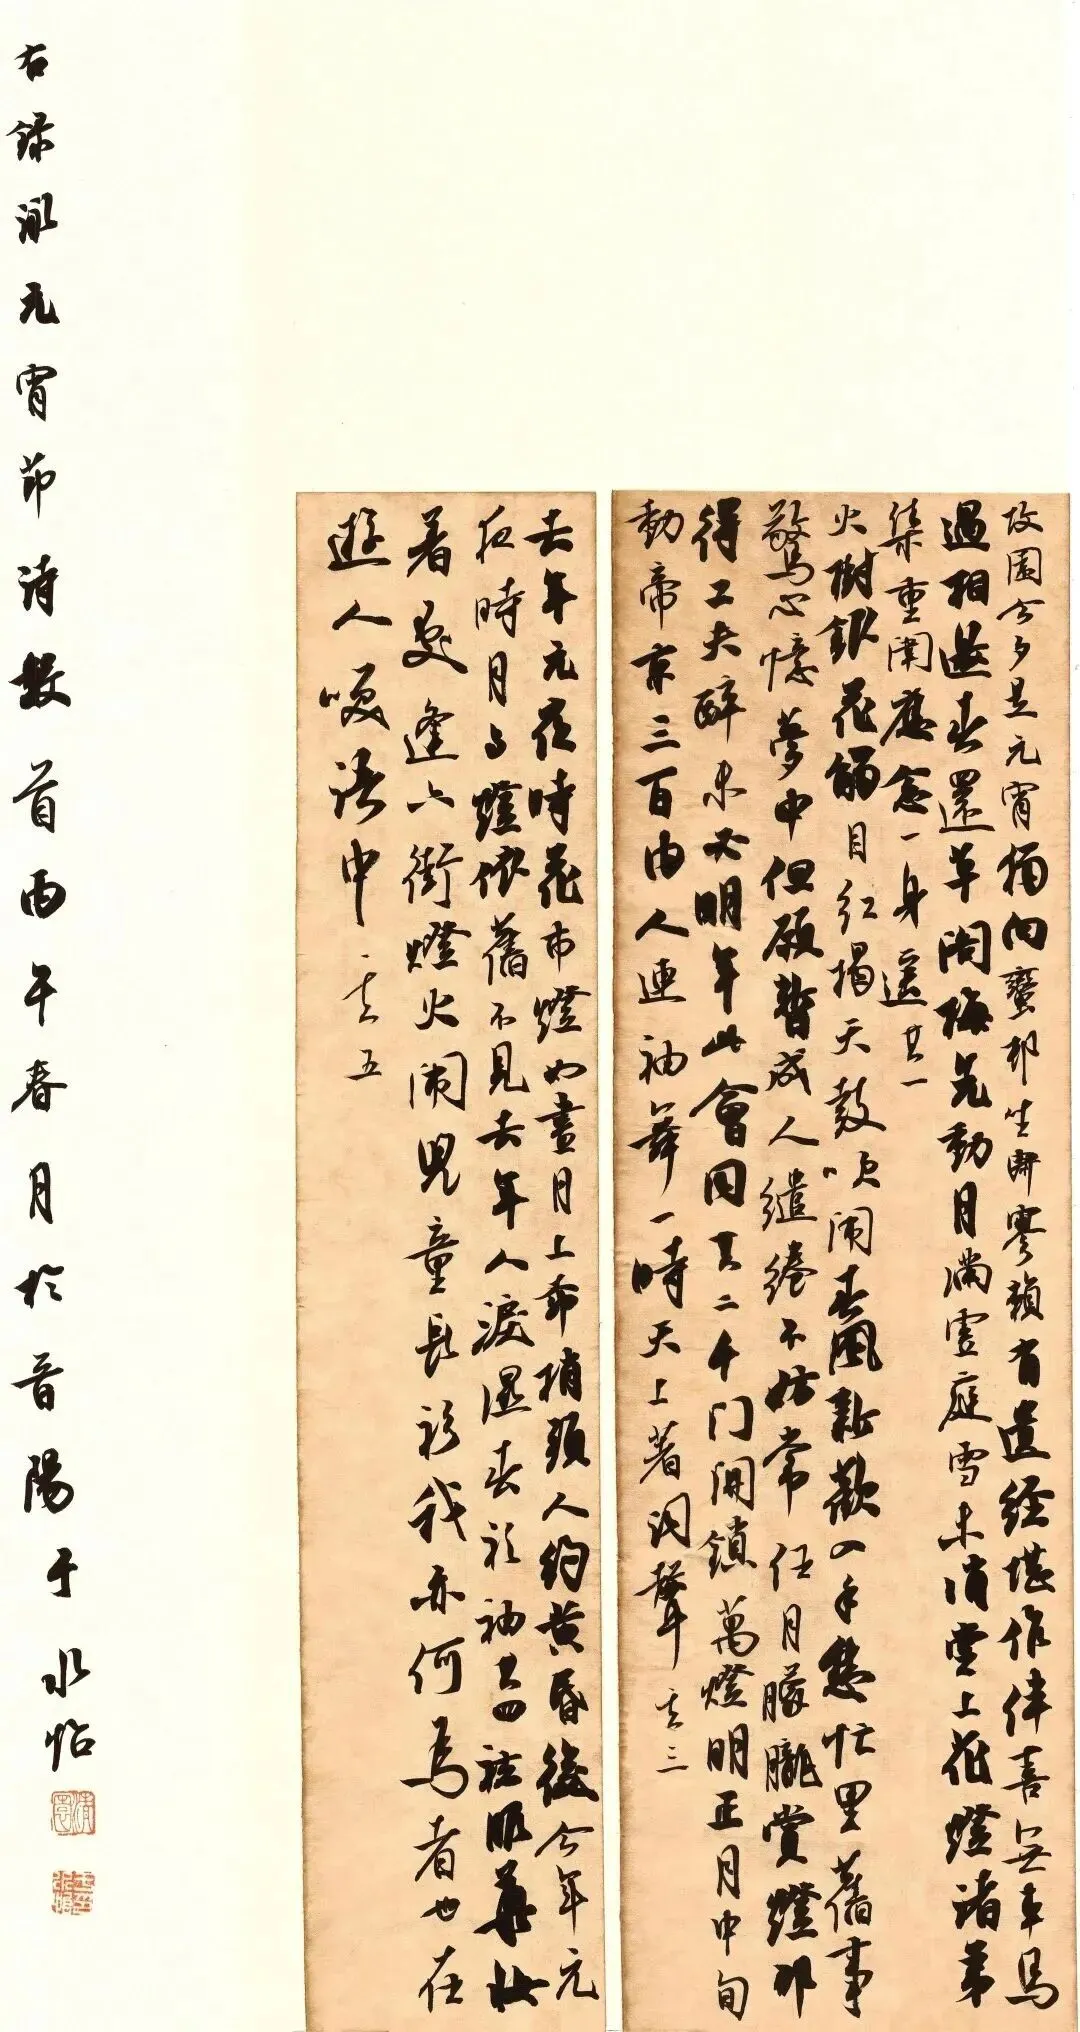 故園今夕是元宵獨向蠻邨坐寂寥賴有遺經堪作伴喜無車馬
過相邀春還草閣梅先動月滿虛庭雪未消堂上花燈諸弟
集重闈應念一身遙其一
火樹銀花觸目紅揭天鼓吹闹春風新歡入手愁忙里舊事
驚心憶夢中但願暫成人繾綣不妨常任月朦朧賞燈那
得工夫醉未必明年此會同其二千门開鎖萬燈明正月中旬
動帝京三百内人連袖舞一時天上著词聲其三
去年元夜時花市燈如晝月上柳梢頭人約黄昏後今年元
夜時月与燈依舊不見去年人淚濕春衫袖其四袨服華妝
着處逢六街燈火闹兒童長衫我亦何爲者也在
遊人笑語中其五
右録詠元宵節诗數首丙午春月於晉陽于水怡